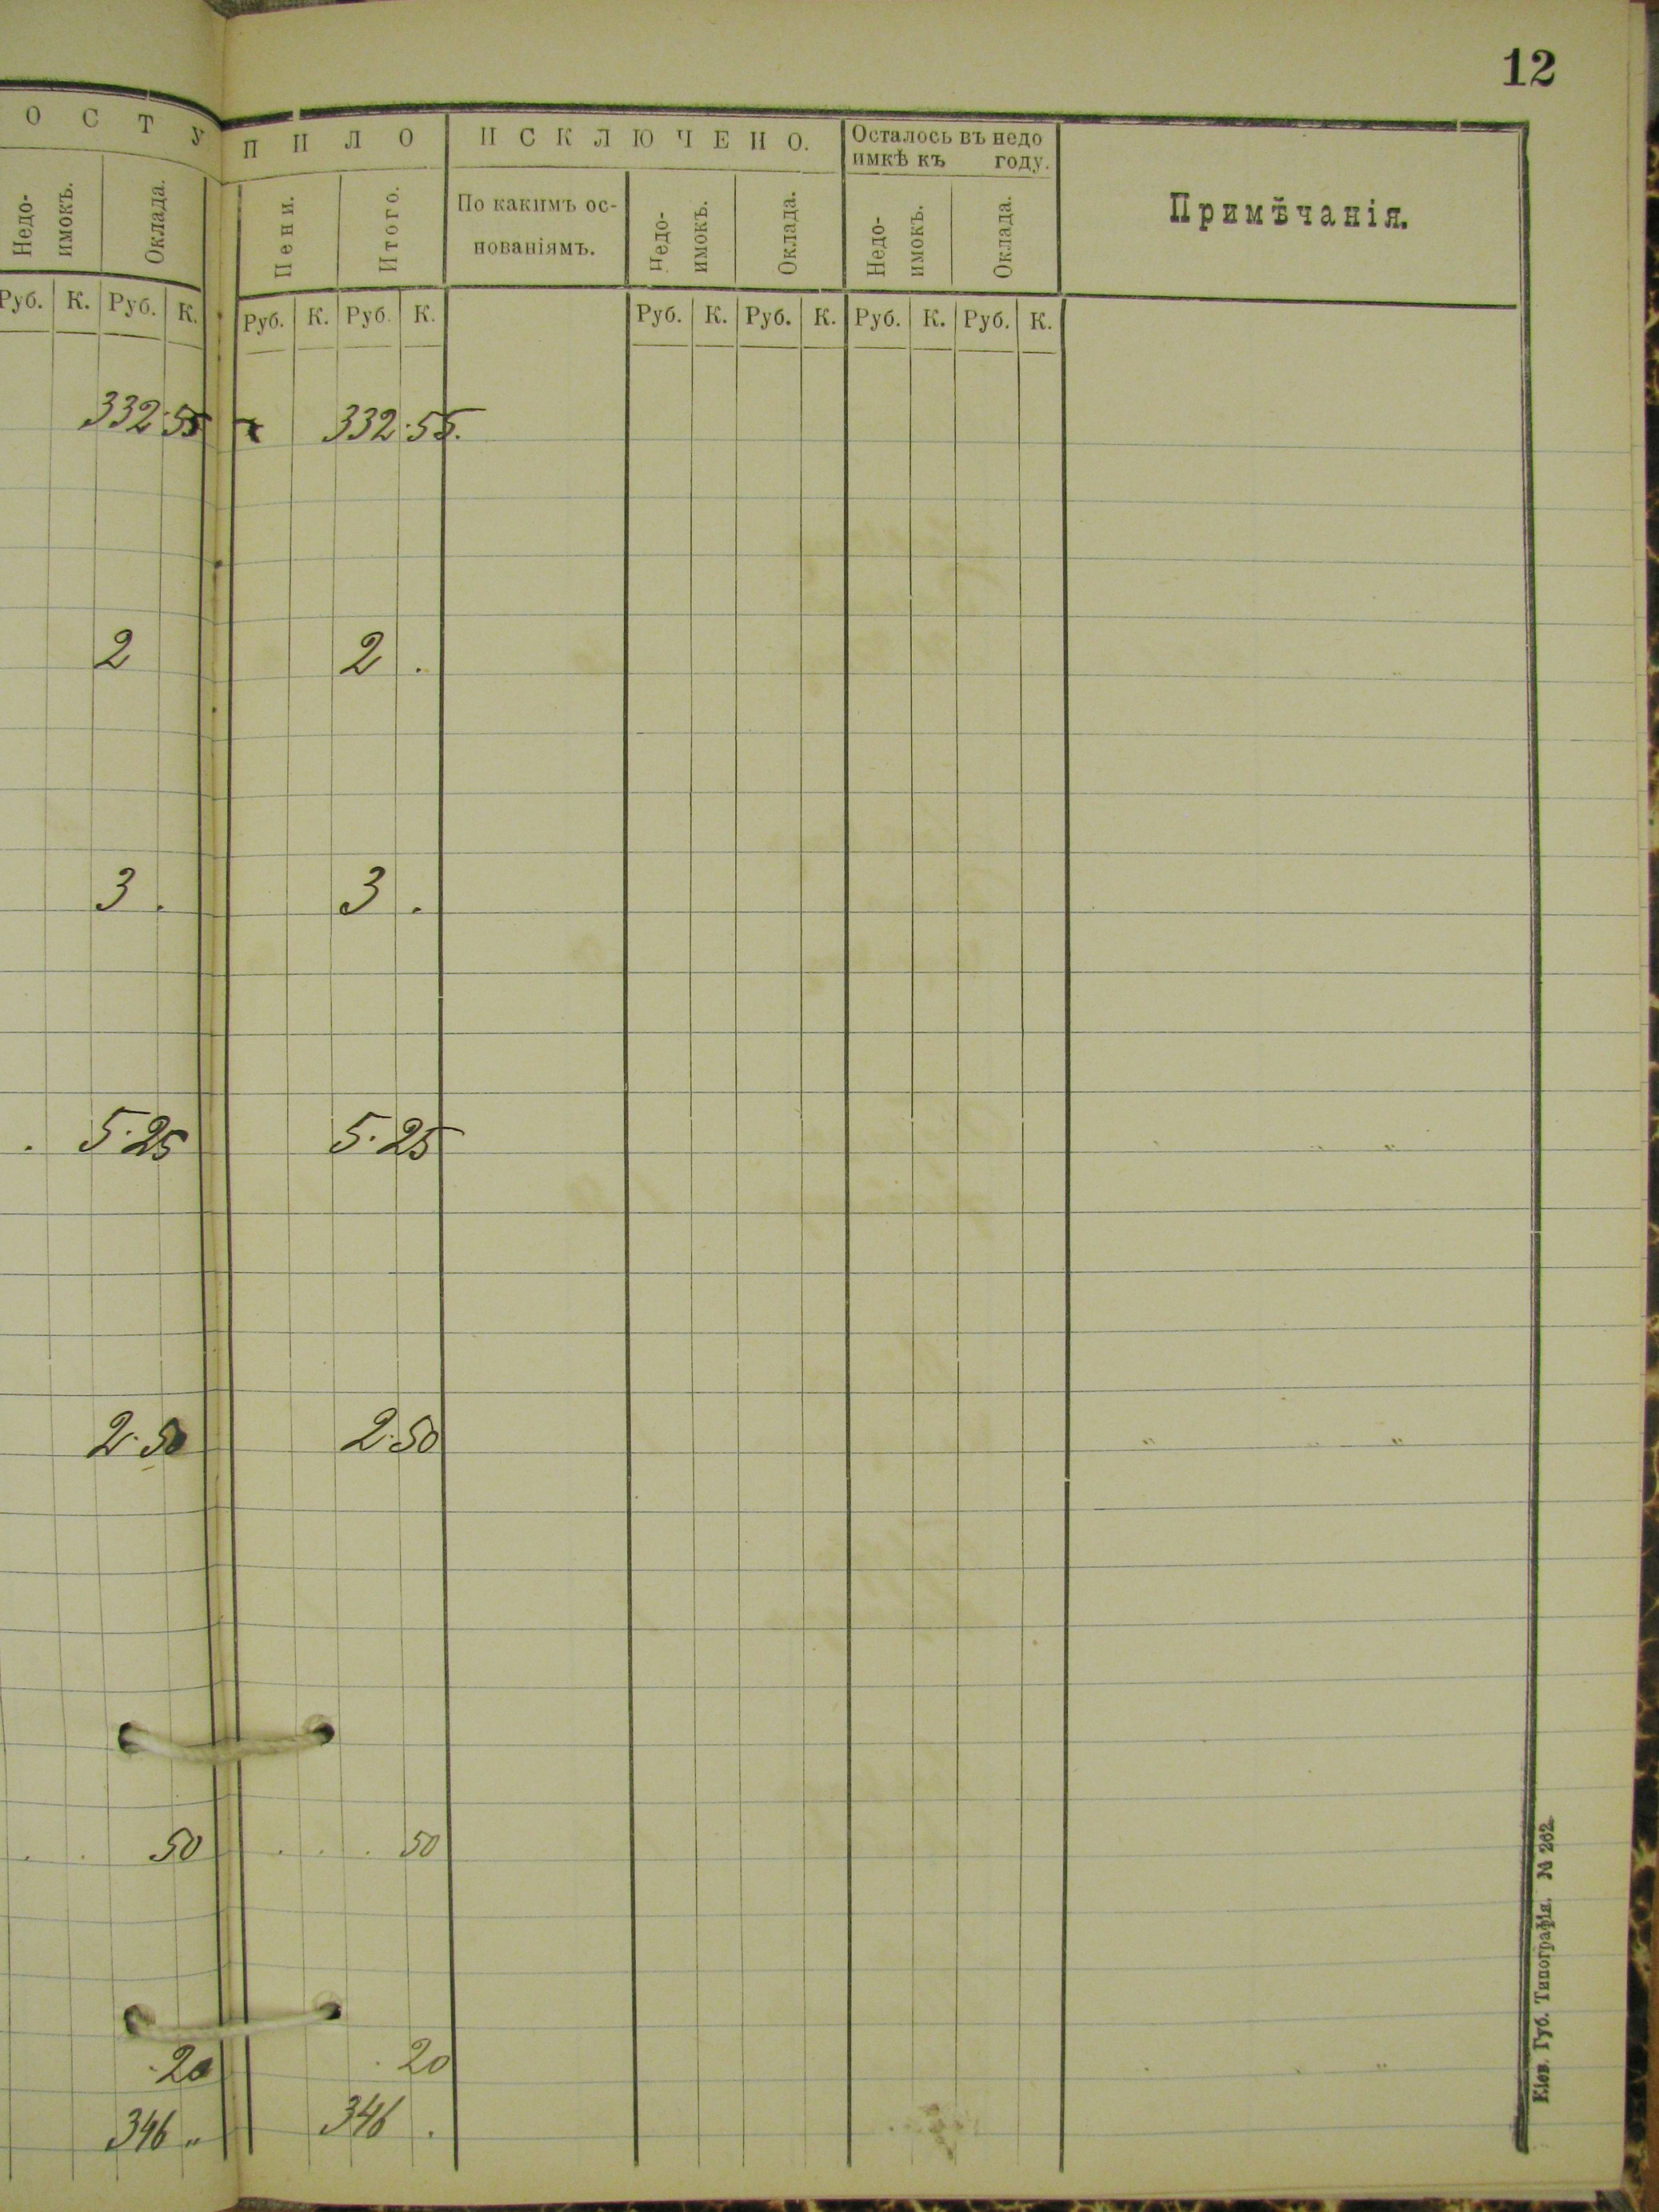 12
ОСТУПИЛО ИСКЛЮЧЕНО. Осталось въ недо
имкѣ къ году.
Недо-
имокъ. Оклада. Пени. Итого. По какимъ ос-
нованіямъ. Недо-
имокъ. Оклада. Недо-
имокъ. Оклада. Примѣчанія.
Руб. К. Руб. К. Руб. К. Руб. К. Руб. К. Руб. К. Руб. К. Руб. К.
332·55 332·55.
2 2 .
3 . 3 .
. 5·25 5·25
2·50 2·50
. . 50 . . . 50
·20 · 20
346 „ 346 .
Кіев. Губ. Типографія. № 262